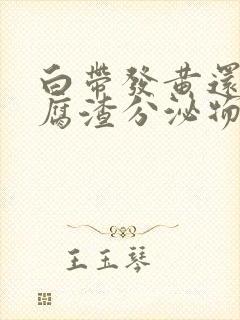 白帶發黃還
腐渣分泌物
王玉琴